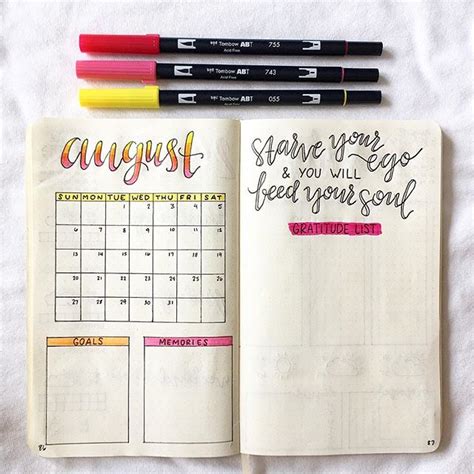 Tombow ABT 755
Acid Free
Tombow ABT 743
Acid Free
Tombow ABT 055
Acid Free
august
SUN MON TUE WED THU FRI SAT
1 2 3 4 5
6 7 8 9 10 11 12
13 14 15 16 17 18 19
20 21 22 23 24 25 26
27 28 29 30 31
GOALS
MEMORIES
86
starve your
ego
& YOU WILL
feed your soul
GRATITUDE LIST
87